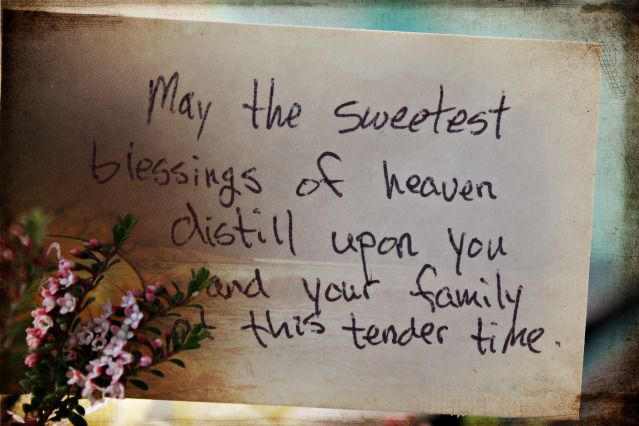 May the sweetest
blessings of heaven
distill upon you
and your family
at this tender time.